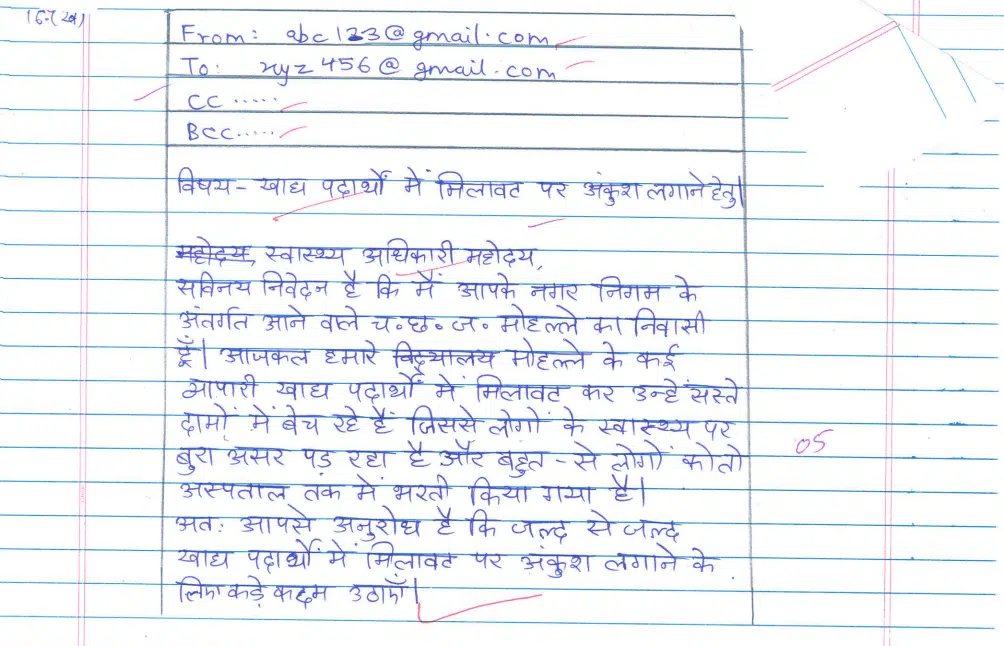 16-(ख)
From: abc123@gmail.com
To: xyz456@gmail.com
CC .....
BCC.....
विषय - खाद्य पदार्थों में मिलावट पर अंकुश लगाने हेतु।
महोदय, स्वास्थ्य अधिकारी महोदय,
सविनय निवेदन है कि मैं आपके नगर निगम के
अंतर्गत आने वाले च.छ.ज. मोहल्ले का निवासी
हूँ। आजकल हमारे विद्यालय मोहल्ले के कई
व्यापारी खाद्य पदार्थों में मिलावट कर उन्हें सस्ते
दामों में बेच रहे हैं जिससे लोगों के स्वास्थ्य पर
बुरा असर पड़ रहा है और बहुत - से लोगों को तो
अस्पताल तक में भरती किया गया है।
05
अत: आपसे अनुरोध है कि जल्द से जल्द
खाद्य पदार्थों में मिलावट पर अंकुश लगाने के
लिए कड़े कदम उठाएँ।